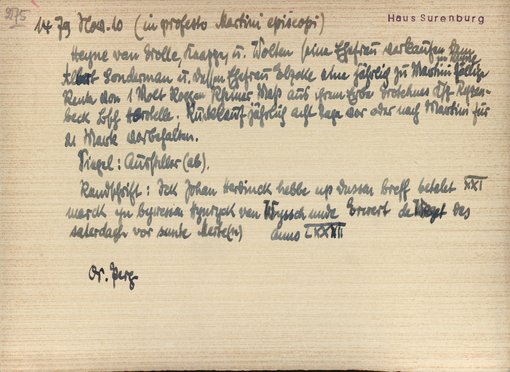 275
Haus Surenburg
1479 Nov. 10 (in profesto Martini episcopi)
Heyne van Trolle, Knappe u. Wolten seine Ehefrau verkaufen dem
Albert Sonderman u. dessen Ehefrau Elzeke eine jährlich zu Martini fällige
Rente von 1 Molt Roggen Rheiner Maß aus ihrem Erbe
beck. Rückkauf jährlich acht Tage vor oder nach Martini für
21 Mark vorbehalten.
Siegel: Aussteller (ab).
Randschrift: Ick Johan hebbe up dussen breff betalet XXI
marck yn bywesen van unde Evert de des
saterdach vor sunte Merte(n) anno LXXXII
Or. Perg.